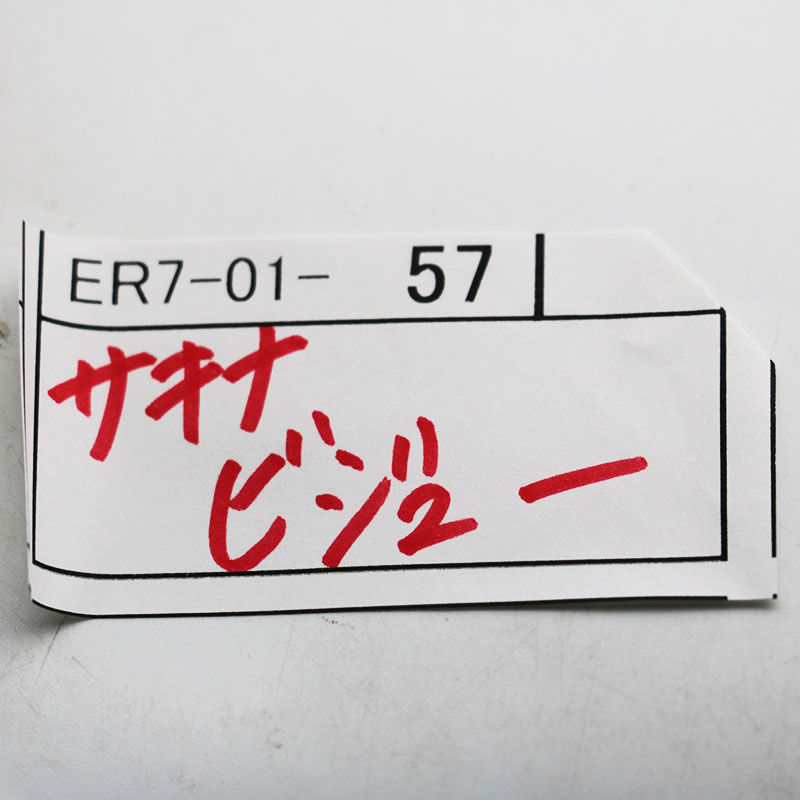 ER7-01- 57
サキナ
ビジュー